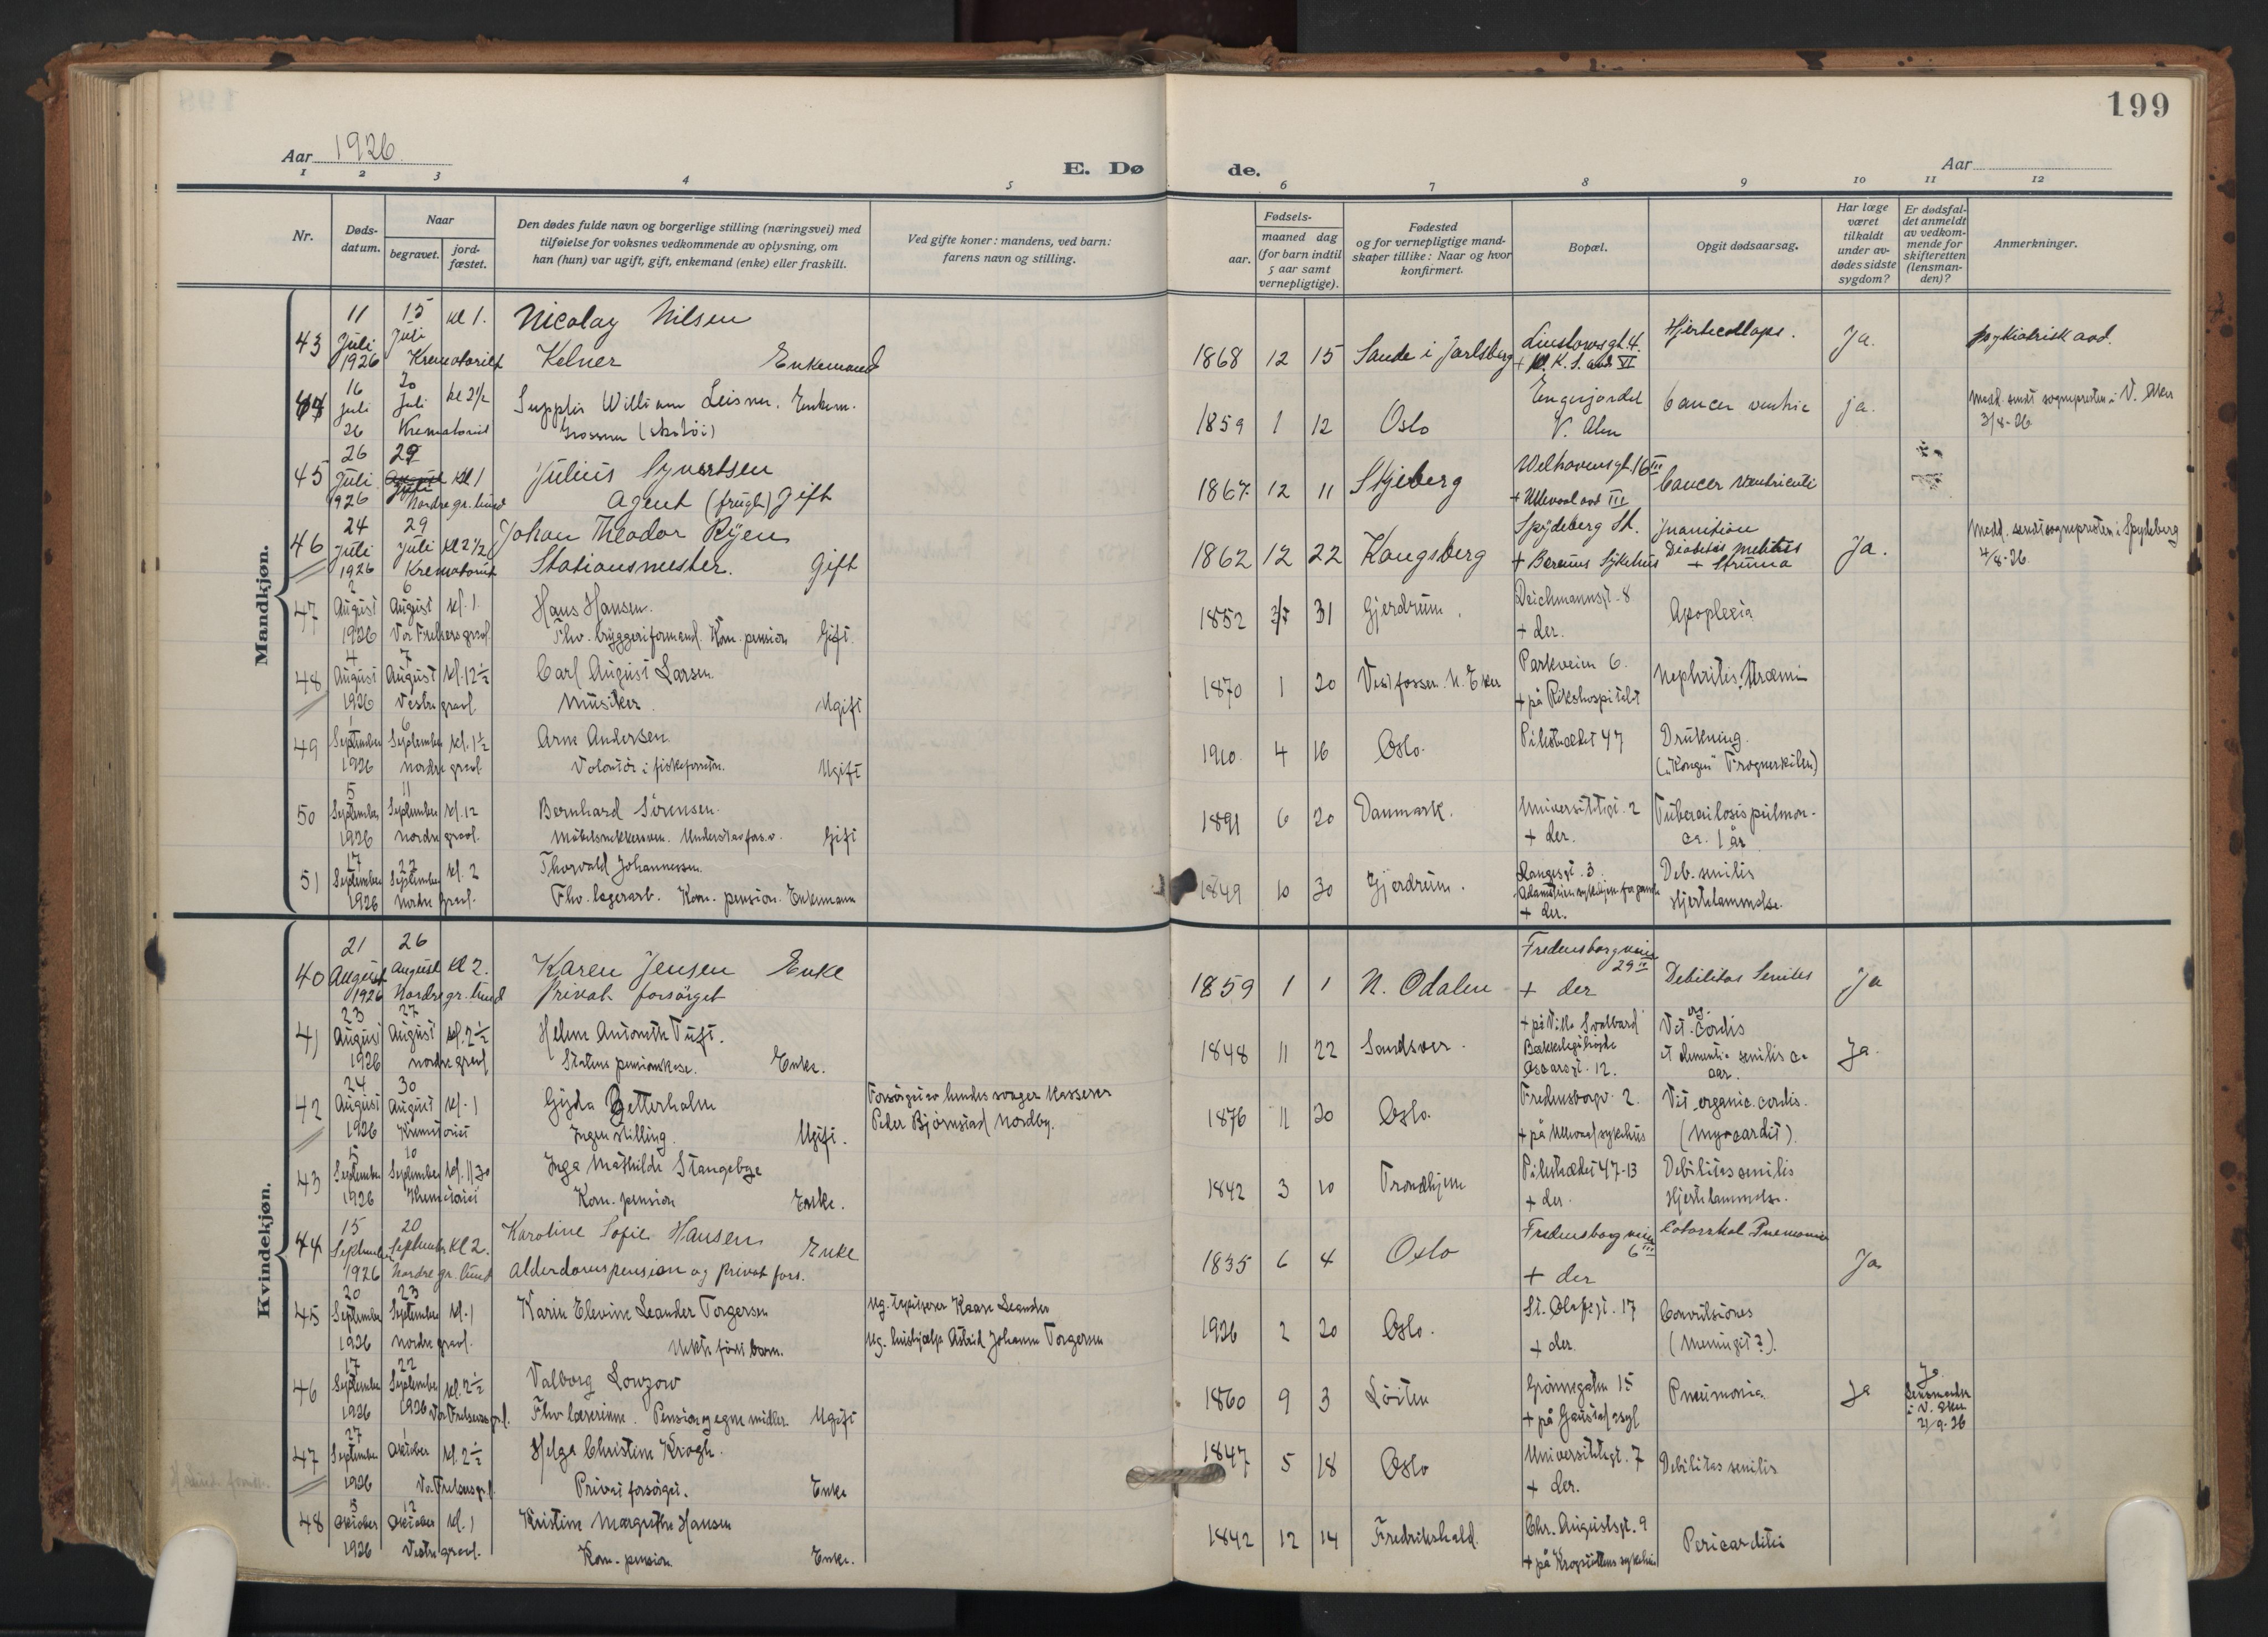 199
Aar 1926
E. Døde.
Aar
1 2 3 4 5 6 7 8 9 10 11 12
Nr.
Døds-
datum.
Naar
begravet.
jord-
fæstet.
Den dødes fulde navn og borgerlige stilling (næringsvei) med
tilføielse for voksnes vedkommende av oplysning, om
han (hun) var ugift, gift, enkemand (enke) eller fraskilt.
Ved gifte koner: mandens, ved barn:
farens navn og stilling.
Fødsels-
aar.
maaned dag
(for barn indtil
5 aar samt
vernepligtige).
Fødested
og for vernepligtige mand-
skaper tillike: Naar og hvor
konfirmert.
Bopæl.
Opgit dødsaarsag.
Har læge
været
tilkaldt
under av-
dødes sidste
sygdom?
Er dødsfal-
det anmeldt
av vedkom-
mende for
skifteretten
(lensman-
den)?
Anmerkninger.
Mandkjøn.
43
11 Juli 1926
15 Juli kl 1.
Krematoriet
Nicolay Nilsen
Kelner Enkemand
1868 12 15
Sande i Jarlsberg
Linstowsgt. 4.
Hjertecollaps.
Ja.
psykiatrisk avd.
44
16 juli 26
20 juli kl 2 1/2
Krematoriet
William Leisner. Enkem.
1859 1 12
Oslo
Cancer ventric
ja.
Medd. sendt sognepresten i V. Aker
3/8-26
45
26 Juli 1926
29 Juli kl 1
Nordre gr. lund
Julius Syvertsen
Agent (frugt) Gift
1867 12 11
Skjeberg
Welhavensgt. 16 III
+ Ullevaal avd III
Cancer ventriculi
46
24 Juli 1926
29 Juli kl 2 1/2
Krematoriet
Johan Theodor Ryen
Stationsmester. Gift
1862 12 22
Kongsberg
Spydeberg St.
+ Bærums Sykehus
Inanition
Diabetes melitus
+ Struma
Ja.
Medd. sendt sognepresten i Spydeberg
4/8-26
47
2 August 1926
6 August kl. 1
Vor Frelsers gravl.
Hans Hansen.
Fhv. bryggeriformand. Kom. pension Gift.
1852 31
Gjerdrum.
Deichmannsgt. 8
+ der.
Apoplexia
48
4 August 1926
7 August kl. 12 1/2
Vestre gravl.
Carl August Larsen.
Musiker. Ugift
1870 1 20
Vestfossen. N. Eker
Parkveien 6.
+ på Rikshospitalet
Nephritis. Uræmi
49
1 September 1926
6 September kl. 1 1/2
Nordre gravl.
Arne Andersen.
Volontør i fiskeforretn. Ugift
1910. 4 16
Oslo.
Pilestrædet 47
Drukning.
("Kongen" Frognerkilen)
50
5 September 1926
11 September kl. 12
Nordre gravl.
Bernhard Sørensen.
Møbelsnekkersven. Understøt. av fors.v. Gift
1891 6 20
Danmark.
Universitetsgt. 2
+ der.
Tuberculosis pulmon.
ca. 1 år
51
17 September 1926
22 September kl. 2
Nordre gravl.
Thorvald Johannesen.
Fhv. lagerarb. Kom. pension. Enkemann
1849 10 30
Gjerdrum.
Langesgt. 3.
+ der.
Deb. senilis
Hjertelammelse.
Kvindekjøn.
40
21 August 1926
26 August kl 2.
Nordre gr. lund
Karen Jensen Enke
Privat forsørget
1859 1 1
N. Odalen
Fredensborgveien
29 IV
+ der
Debilitas Seniles
Ja
41
23 August 1926
27 August kl. 2 1/2
Nordre gravl
Helene Antonette Tuft.
Statens pensionskasse. Enke.
1848 11 22
Sandsvær.
+ på Villa Svalbard
Bækkelagshøgda
Oscarsgt. 12.
Vit. org. cordis
et dementia senilis ca
aar.
Ja.
42
24 August 1926
30 August kl. 1
Krematoriet
Gyda Zetterholm
Ingen stilling. Ugift.
Forsørget av hendes svoger Kasserer
Peder Bjørnstad Nordby.
1876 11 20
Oslo.
Fredensborgv. 2.
+ på Ullevaal sykehus
Vit. organic. cordis.
(Myocardit).
43
5 September 1926
10 September kl. 11 30
Krematoriet
Inga Mathilde Stangebye
Kom. pension Enke.
1842 3 10
Trondhjem
Pilestrædet 47-13
+ der.
Debilitas senilis
Hjertelammelse.
44
15 September 1926
20 September kl 2.
Nordre gr. lund
Karoline Sofie Hansen Enke
Alderdomspension og privat fors.
1835 6 4
Oslo
Fredensborgveien
6 III
+ der
Catarrhal Pnemonia
Ja
45
20 September 1926
23 September kl. 1
Nordre gravl.
Karin Elevine Leander Torgersen
Uekte født barn.
Ug. Kaare Leander
Ug. hushjælp Astrid Johanne Torgersen
1926 2 20
Oslo.
St. Olafsgt. 17
+ der.
Convulsiones
(Meningit?).
46
17 September 1926
22 September 1926 kl. 2 1/2
Vor Frelsers gr.l.
Valborg Lowzow
Fhv lærerinne. Pension og egne midler. Ugift
1860 9 3
Løiten
Grønnegaten 15
+ på Gaustad asyl
Pneumonia
Ja
Ja.
Lensmanden
i V. Aker
21/9-26
47
27 September 1926
1 Oktober kl. 2 1/2
Vor Frelsers gr.l.
Helga Christine Krogh.
Privat forsørget. Enke
1847 5 18
Oslo
Universitetsgt. 7
+ der.
Debilitas senilis
48
Oktober 1926
12 Oktober kl. 1
Vestre gravl.
Kristine Margrethe Hansen
Kom. pension Enke.
1842 12 14
Fredrikshald.
Chr. Augustsgt. 9
+ på Krogstøttens sykehus
Pericarditis